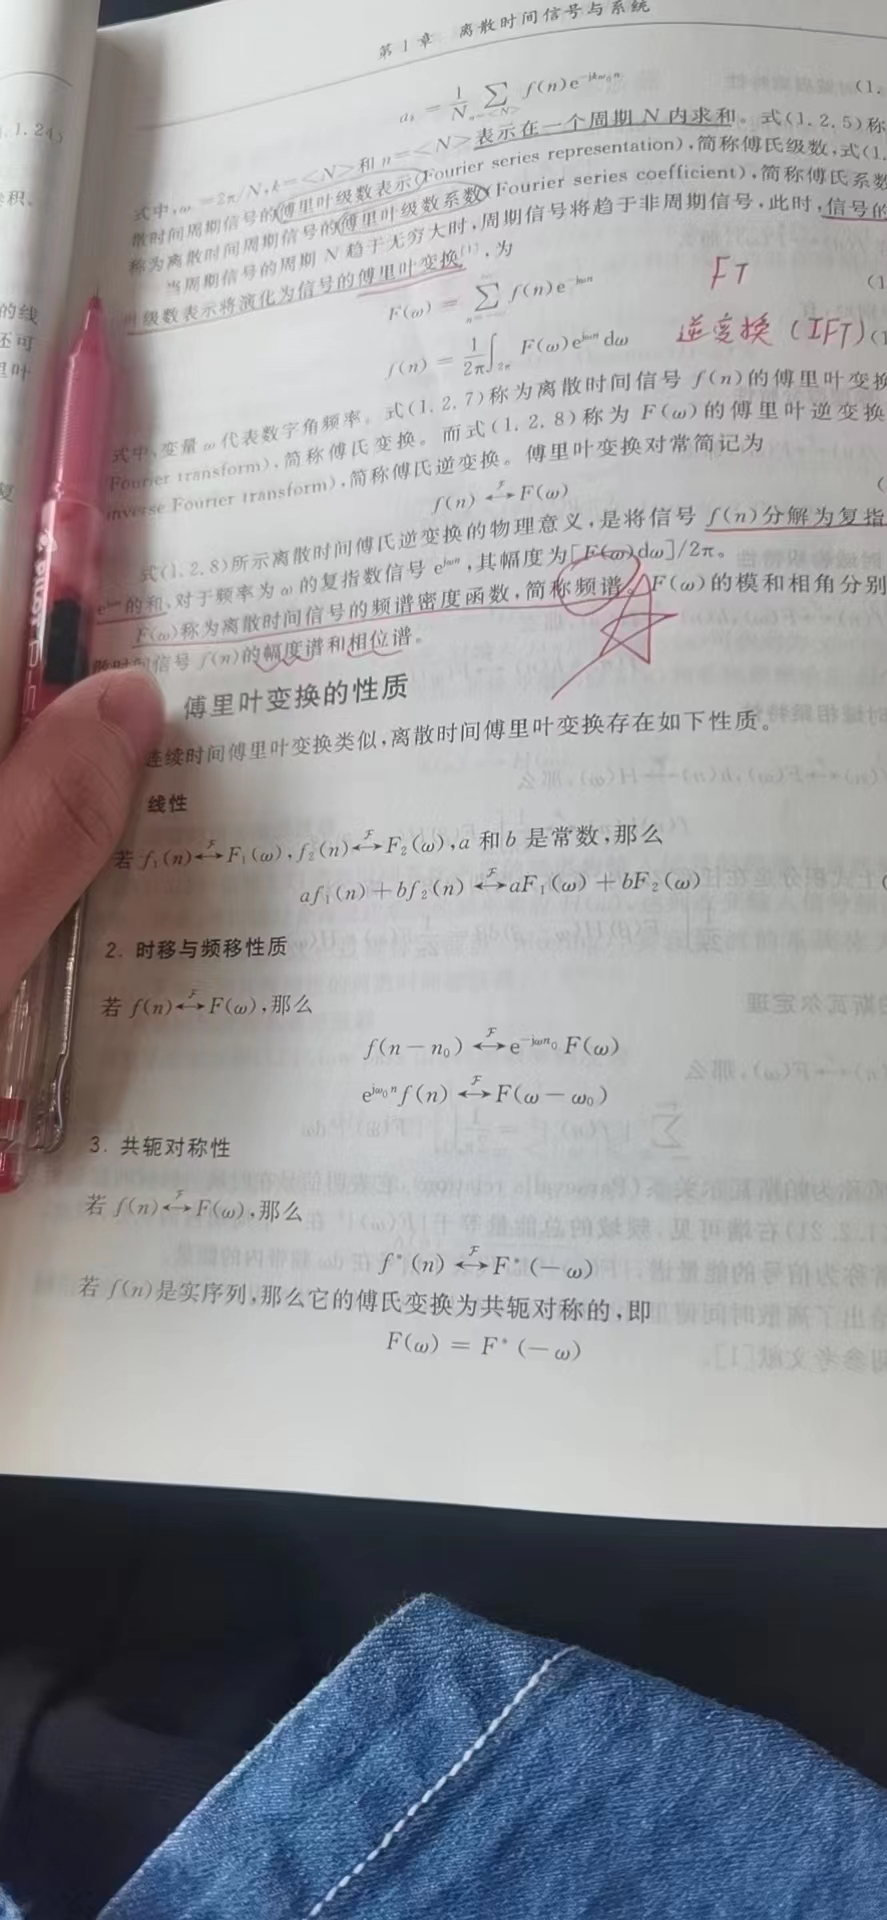 第1章 离散时间信号与系统
1.24)
(1.
a_k = 1/N Σ_{n=<N>} f(n)e^{-jkω₀n}
式中, ω₀=2π/N, k=<N>和n=<N>表示在一个周期 N 内求和。式(1.2.5)称
散时间周期信号的傅里叶级数表示(Fourier series representation),简称傅氏级数,式(1.
称为离散时间周期信号的傅里叶级数系数(Fourier series coefficient),简称傅氏系数
当周期信号的周期 N 趋于无穷大时,周期信号将趋于非周期信号,此时,信号的
叶级数表示将演化为信号的傅里叶变换[1],为
的线
还可
里叶
F(ω) = Σ f(n)e^{-jωn}
FT
(1
f(n) = 1/2π ∫_{2π} F(ω)e^{jωn}dω
逆变换(IFT)
(1
式中,变量 ω 代表数字角频率。式(1.2.7)称为离散时间信号 f(n)的傅里叶变换
Fourier transform),简称傅氏变换。而式(1.2.8)称为 F(ω)的傅里叶逆变换
inverse Fourier transform),简称傅氏逆变换。傅里叶变换对常简记为
f(n) ⟷^ℱ F(ω)
(
式(1.2.8)所示离散时间傅氏逆变换的物理意义,是将信号 f(n)分解为复指
e^{jωn}的和,对于频率为 ω 的复指数信号 e^{jωn},其幅度为[F(ω)dω]/2π。
F(ω)称为离散时间信号的频谱密度函数,简称频谱。F(ω)的模和相角分别
散时间信号 f(n)的幅度谱和相位谱。
傅里叶变换的性质
连续时间傅里叶变换类似,离散时间傅里叶变换存在如下性质。
线性
若 f₁(n)⟷^ℱ F₁(ω), f₂(n)⟷^ℱ F₂(ω), a 和 b 是常数,那么
af₁(n)+bf₂(n) ⟷^ℱ aF₁(ω)+bF₂(ω)
(
2. 时移与频移性质
若 f(n)⟷^ℱ F(ω),那么
f(n-n₀) ⟷^ℱ e^{-jωn₀} F(ω)
e^{jω₀n} f(n) ⟷^ℱ F(ω-ω₀)
3. 共轭对称性
若 f(n)⟷^ℱ F(ω),那么
f*(n) ⟷^ℱ F*(-ω)
若 f(n)是实序列,那么它的傅氏变换为共轭对称的,即
F(ω) = F*(-ω)